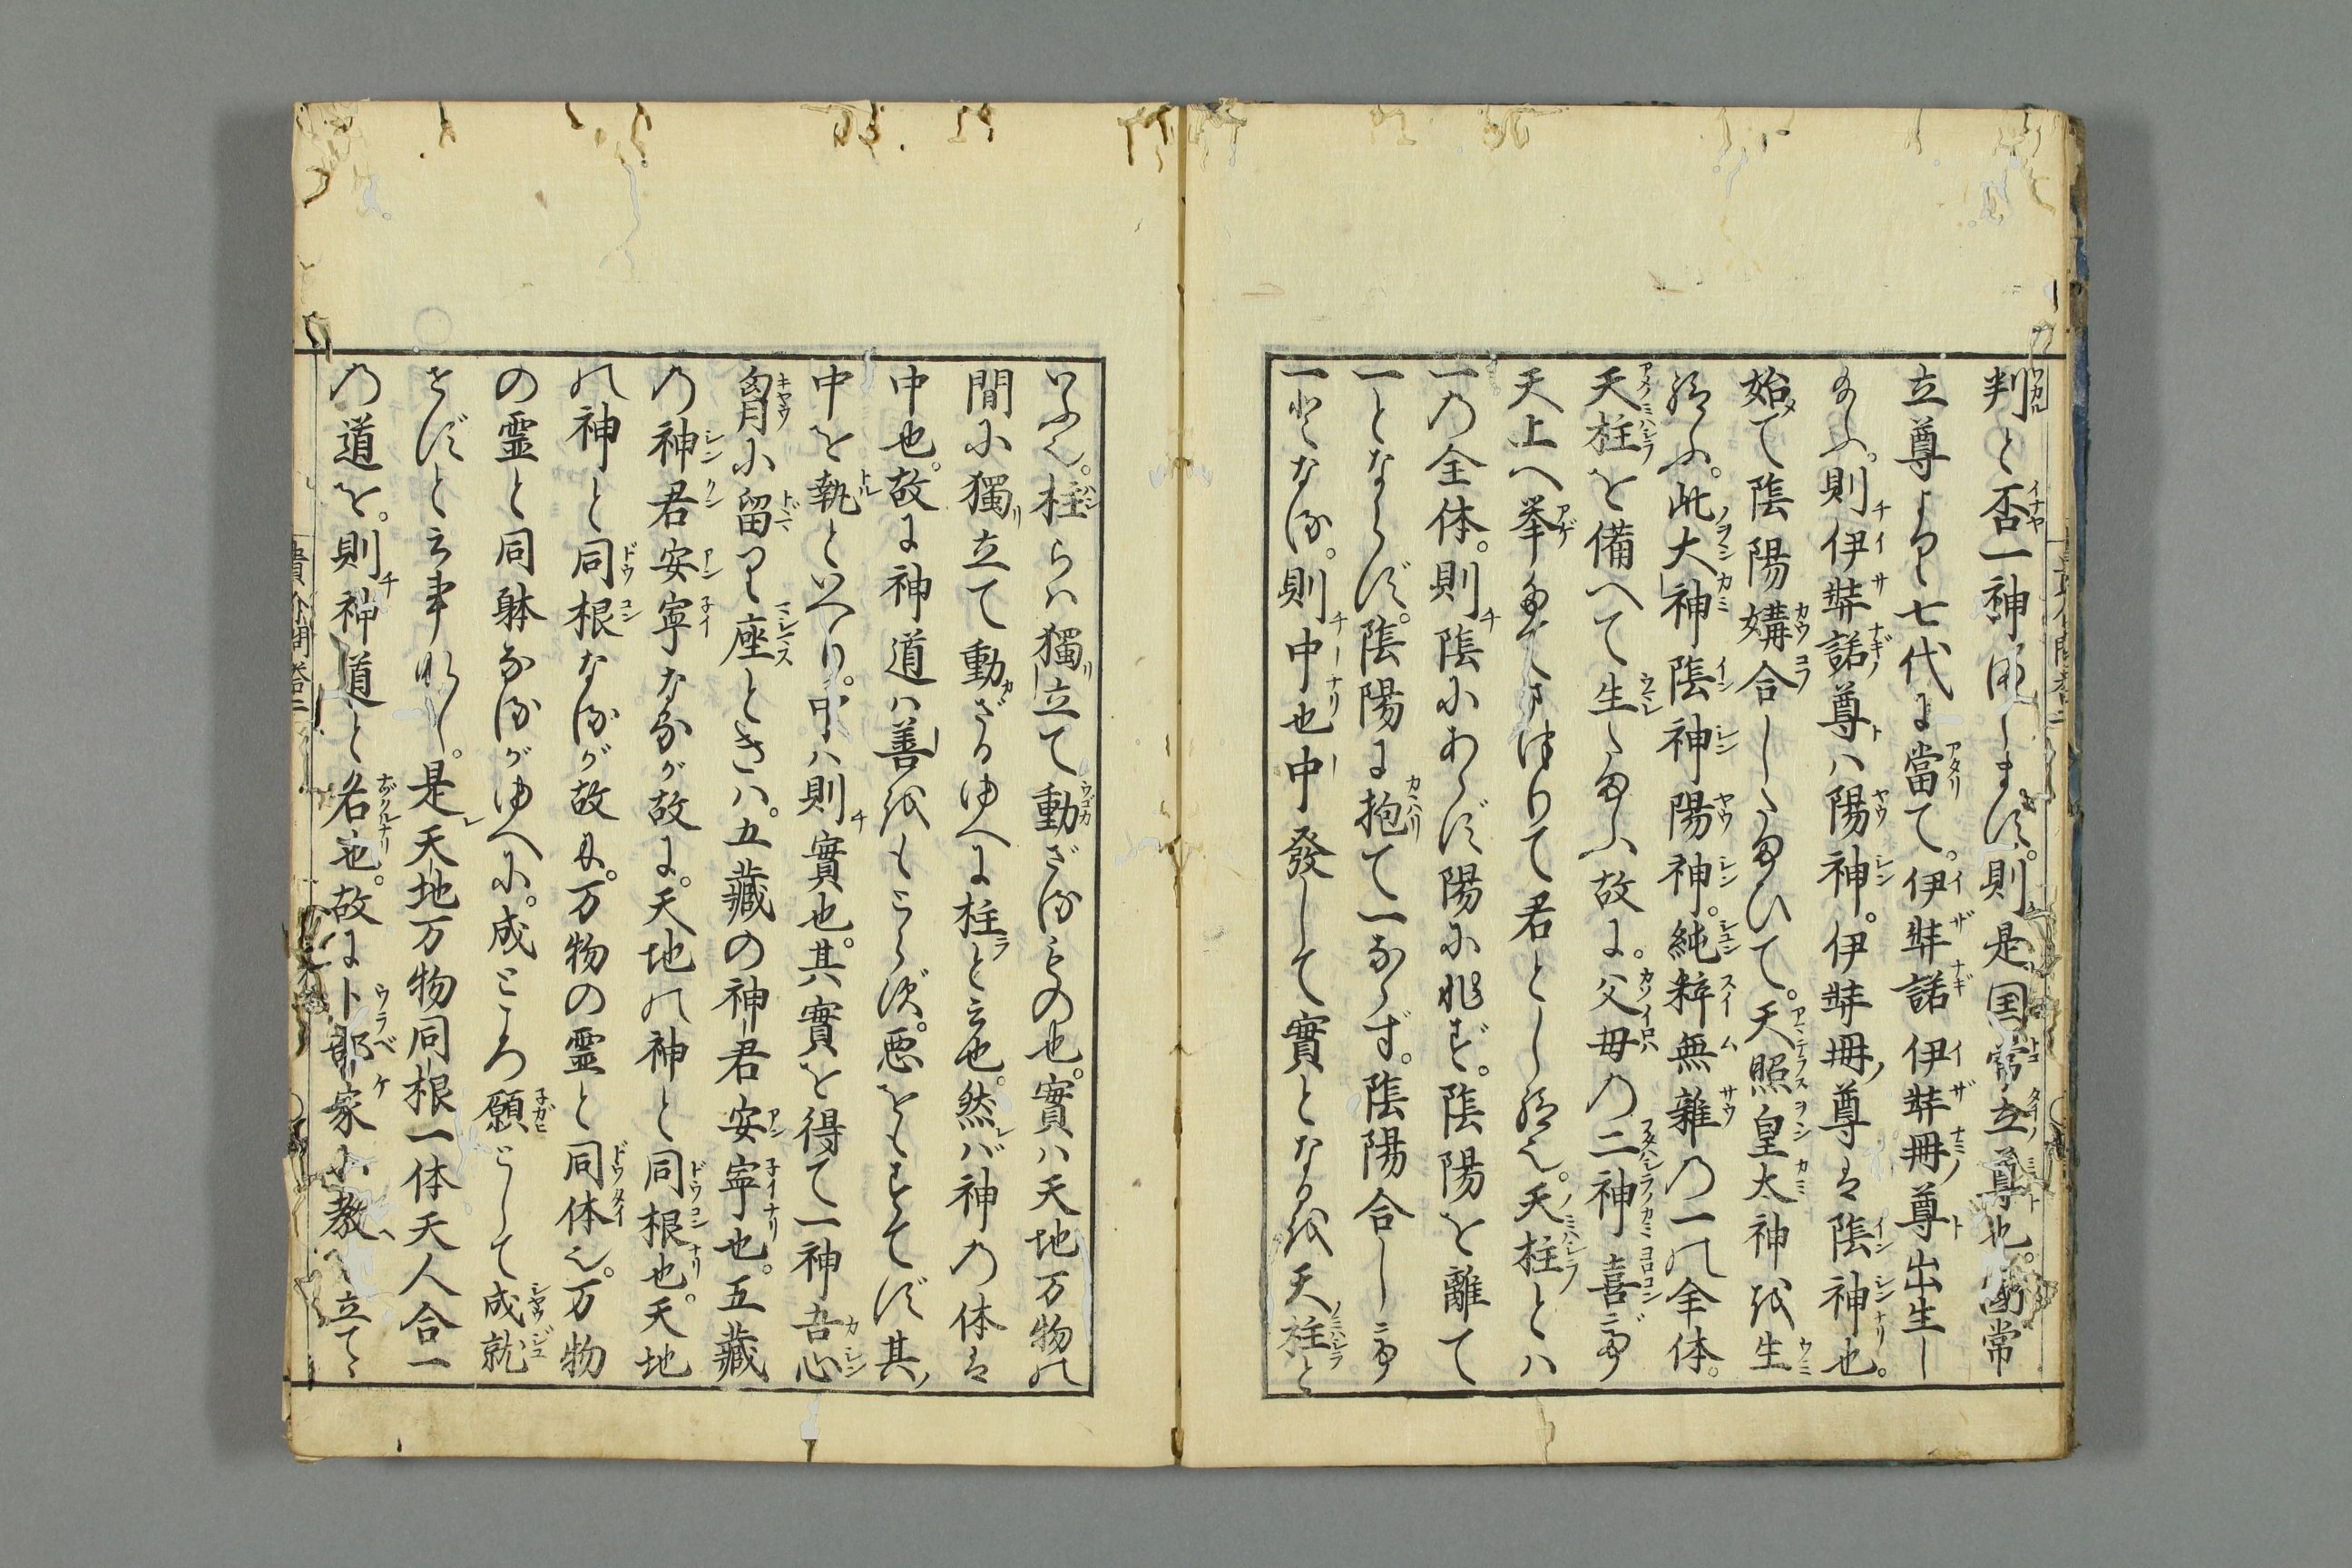 判と否一神現します。則是国常立尊也。国常
立尊より七代に當て。伊弉諾伊弉冊尊出生し
給ふ。則伊弉諾尊ハ陽神。伊弉冊尊は陰神也。
始て陰陽媾合したまひて。天照皇太神を生
給ふ。此大神陰神陽神。純粹無雜の一の全体。
天柱を備へて生たまふ故に。父母の二神喜たまひ
天上へ挙たてまつりて君とし給ふ。天柱とハ
一の全体。則陰にあらず陽に非ず。陰陽を離て
一とならず。陰陽に抱て一ならず。陰陽合したまひ
一となる。則中也中發して實となるを天柱と
いふ也。柱らハ獨立て動ざるもの也。實ハ天地万物の
間に獨立て動ざるゆへに柱と云也。然バ神の体は
中也。故に神道ハ善をもとらず。悪をもすてず其
中を執といへり。中ハ則實也。其實を得て一神吾心
胸に留り座ときハ。五藏の神君安寧也。五藏
の神君安寧なるが故に。天地の神と同根也。天地
の神と同根なるが故に。万物の霊と同体也。万物
の霊と同躰なるがゆへに。成ところ願として成就
せずと云事なし。是天地万物同根一体天人合一
の道を。則神道と名也。故に卜部家に教へ立て